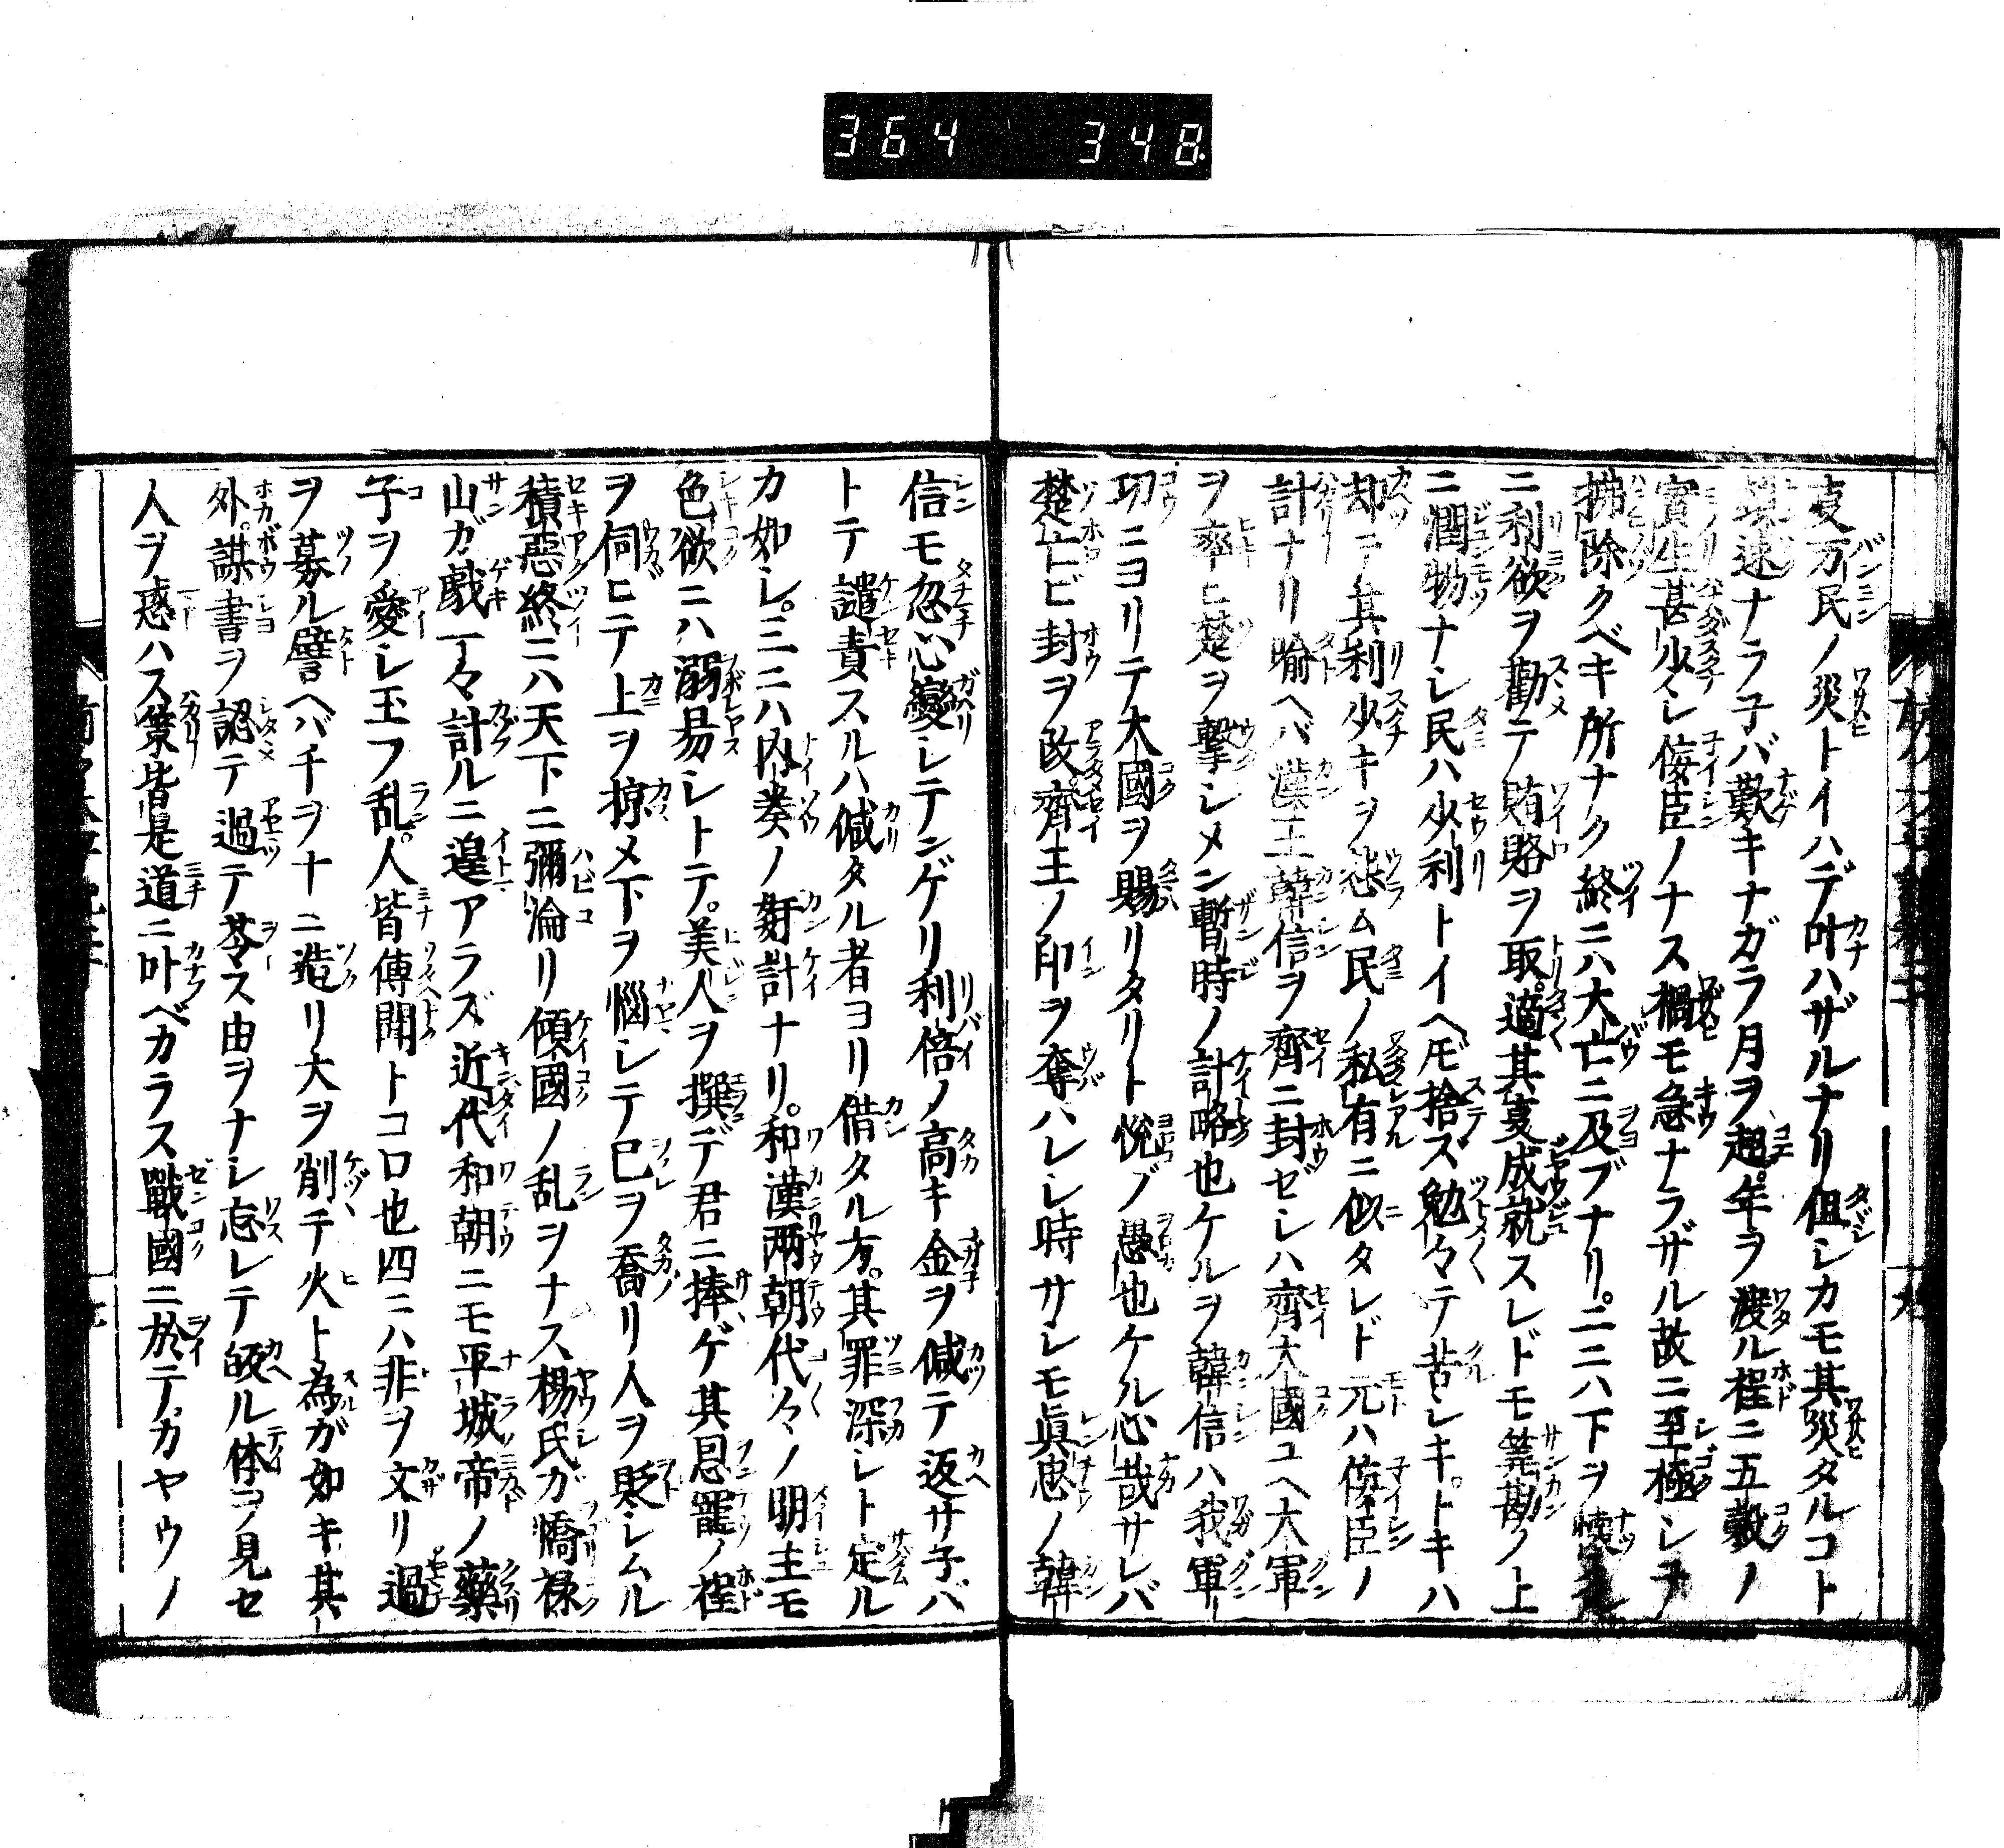 364 348
支万民ノ災トイハデ叶ハザルナリ但シカモ其災タルコト
速ナラ子バ歎キナガラ月ヲ超年ヲ渡ル程ニ五穀ノ
實生甚少シ侫臣ノナス禍モ急ナラザル故ニ至極シテ
拂除クベキ所ナク終ニハ大亡ニ及ブナリ。二ニハ下ヲ懐
ニ利欲ヲ勸テ賄賂ヲ取。適其叓成就スレドモ筭勘ノ上
ニ潤物ナシ民ハ少利トイヘ𪜈捨ス勉々テ苦シキ。トキハ
却テ其利少キヲ悲ム民ノ私有ニ似タレド元ハ侫臣ノ
計ナリ喩ヘバ漢王韓信ヲ齊ニ封ゼシハ齊大國ユヘ大軍
ヲ率ヒ楚ヲ撃シメン暫時ノ計略也ケルヲ韓信ハ我軍
功ニヨリテ大國ヲ賜リタリト悦ブ愚也ケル心哉サレバ
楚亡ビ封ヲ改。齊王ノ印ヲ奪ハレシ時サシモ眞忠ノ韓
信モ忽心變シテンゲリ利倍ノ高キ金ヲ傶テ返サ子バ
トテ譴責スルハ傶タル者ヨリ借タル方。其罪深シト定ル
カ如シ。三ニハ内奏ノ姧計ナリ。和漢兩朝代々ノ明主モ
色欲ニハ溺易シトテ。美人ヲ撰デ君ニ捧ゲ其恩寵ノ程
ヲ伺ヒテ上ヲ掠メ下ヲ惱シテ己ヲ喬リ人ヲ貶シムル
積惡終ニハ天下ニ彌淪リ傾國ノ乱ヲナス楊氏ガ驕祿
山ガ戯一々計ルニ遑アラズ近代和朝ニモ平城帝ノ藥
子ヲ愛シ玉フ乱。人皆傳聞トコロ也四ニハ非ヲ文リ過
ヲ募ル譬ヘバ千ヲ十ニ造リ大ヲ削テ火ト為ガ如キ其
外。謀書ヲ認テ過テ莟ス由ヲナシ忘レテ皈ル体ヲ見セ
人ヲ惑ハス業皆是道ニ叶ベカラス戰國ニ於テカヤウノ